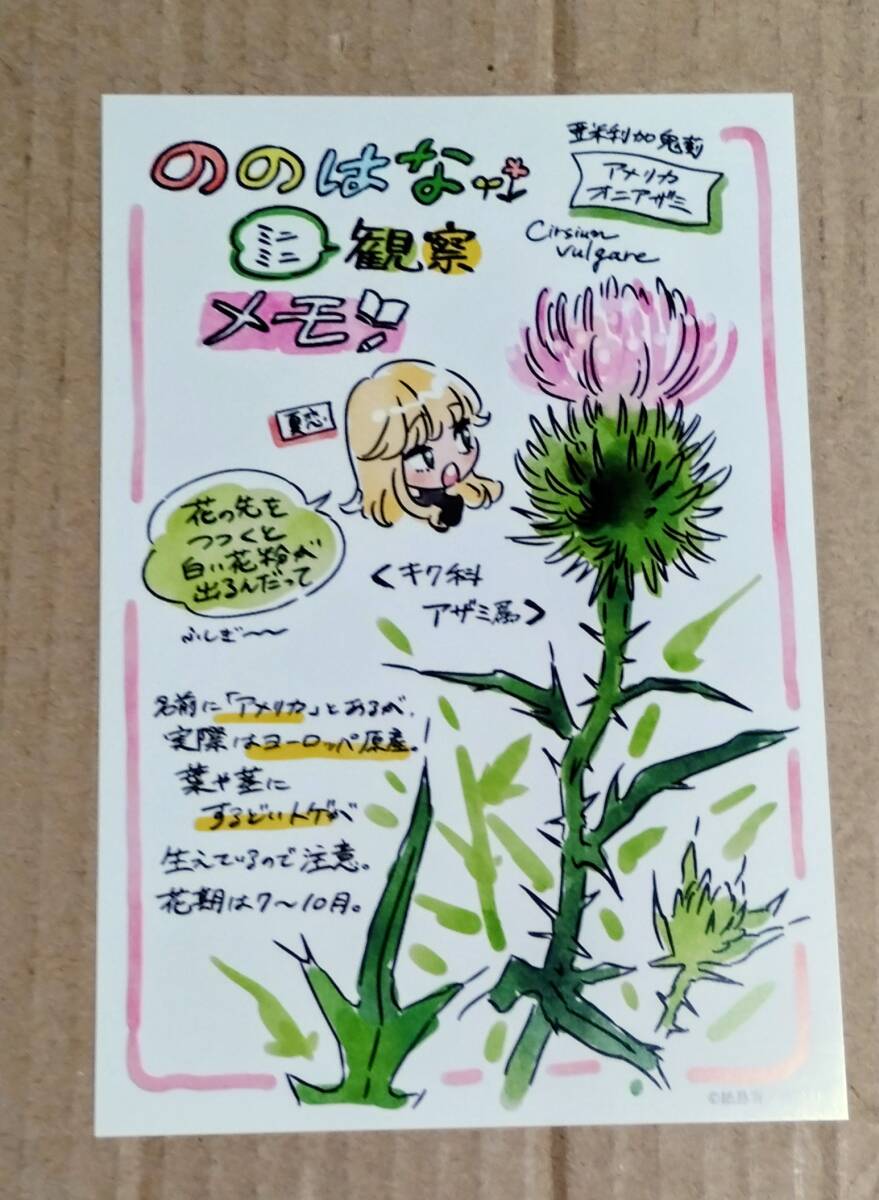 ののはな
ミニミニ
観察
メモ!!
亜米利加鬼薊
アメリカ
オニアザミ
Cirsium
vulgare
夏恋
花の先を
つつくと
白い花粉が
出るんだって
ふしぎ〜〜
<キク科
アザミ属>
名前に「アメリカ」とあるが、
実際はヨーロッパ原産。
葉や茎に
するどいトゲが
生えているので注意。
花期は7〜10月。